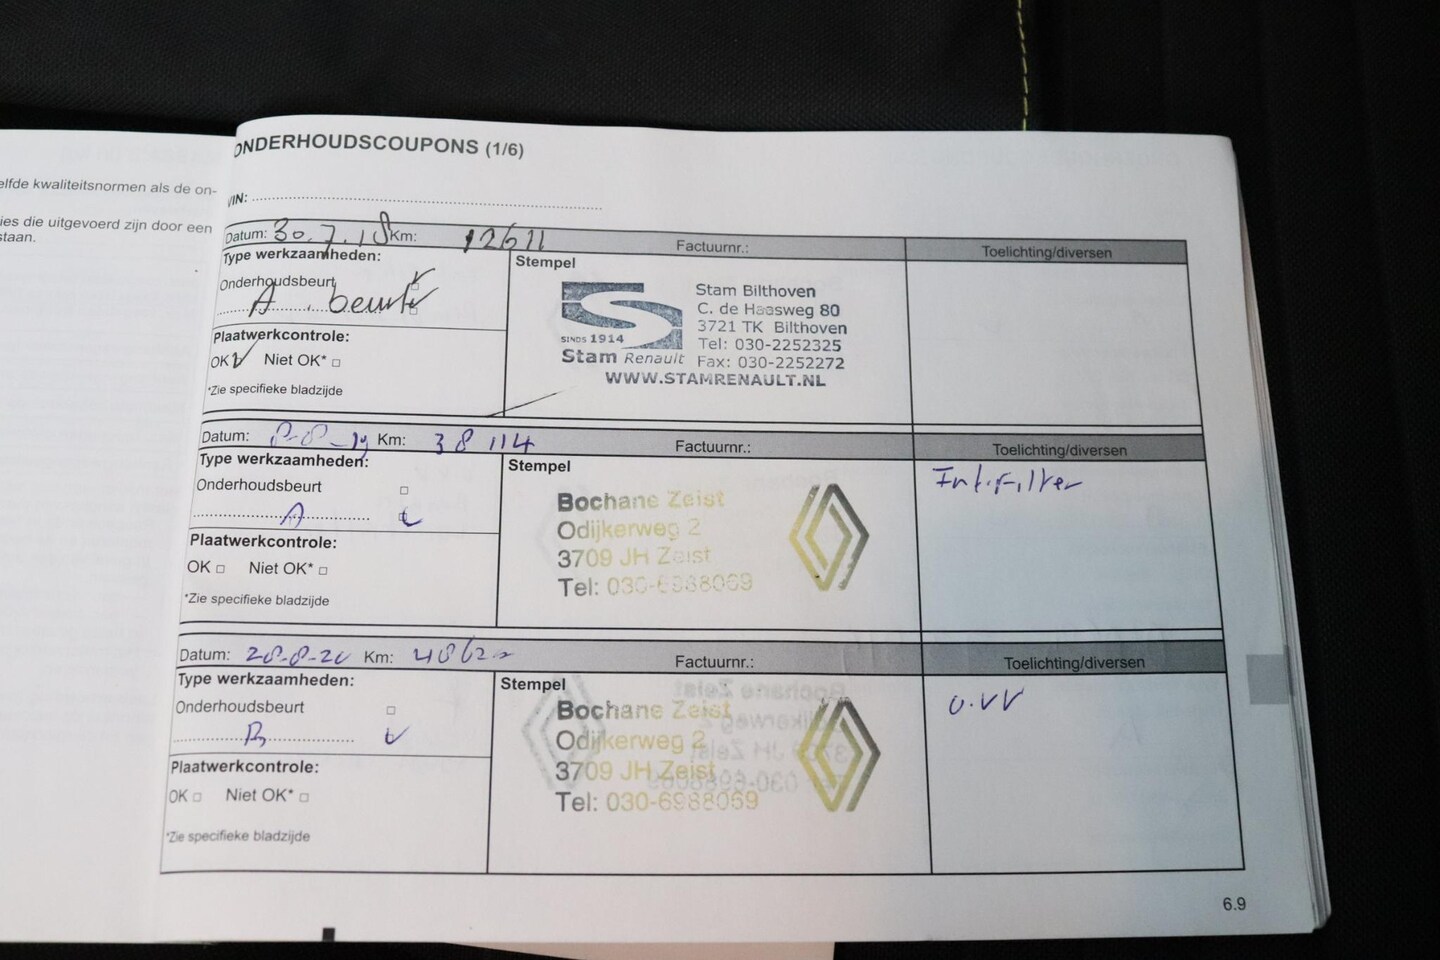 elfde kwaliteitsnormen als de on-
ies die uitgevoerd zijn door een
staan.
ONDERHOUDSCOUPONS (1/6)
VIN:
Datum: 30.7.18 Km: 12611 Factuurnr.: Toelichting/diversen
Type werkzaamheden:
Onderhoudsbeurt
A beurt
Plaatwerkcontrole:
OK Niet OK*
*Zie specifieke bladzijde
Stempel
SINDS 1914
Stam Renault
Stam Bilthoven
C. de Haasweg 80
3721 TK Bilthoven
Tel: 030-2252325
Fax: 030-2252272
WWW.STAMRENAULT.NL
Datum: 8-8-19 Km: 38 114 Factuurnr.: Toelichting/diversen
Type werkzaamheden:
Onderhoudsbeurt
A
Plaatwerkcontrole:
OK Niet OK*
*Zie specifieke bladzijde
Stempel
Bochane Zeist
Odijkerweg 2
3709 JH Zeist
Tel: 030-6988069
Int.Filter
Datum: 28-8-20 Km: Factuurnr.: Toelichting/diversen
Type werkzaamheden:
Onderhoudsbeurt
B
Plaatwerkcontrole:
OK Niet OK*
*Zie specifieke bladzijde
Stempel
Bochane Zeist
Odijkerweg 2
3709 JH Zeist
Tel: 030-6988069
6.9